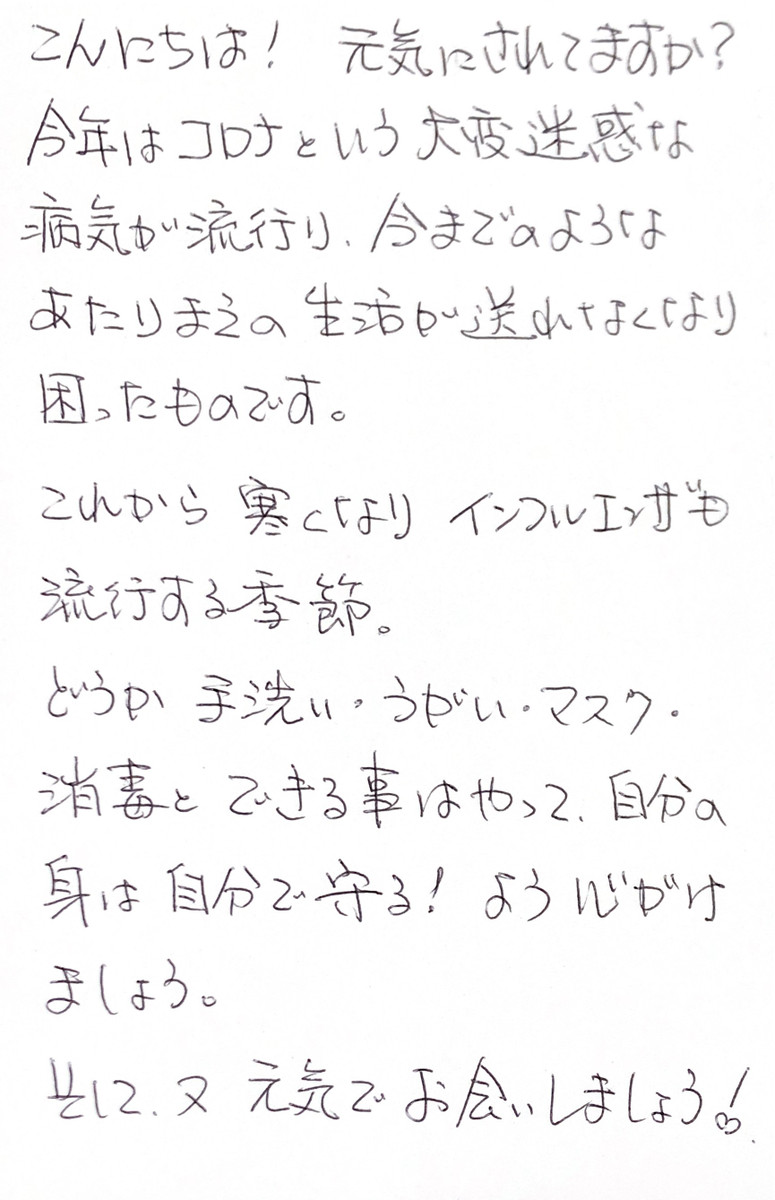 こんにちは! 元気にされてますか?
今年はコロナという大変迷惑な
病気が流行り、今までのような
あたりまえの生活が送れなくなり
困ったものです。
これから寒くなりインフルエンザも
流行する季節。
どうか手洗い・うがい・マスク・
消毒とできる事はやって、自分の
身は自分で守る! よう心がけ
ましょう。
そして、又元気でお会いしましょう!